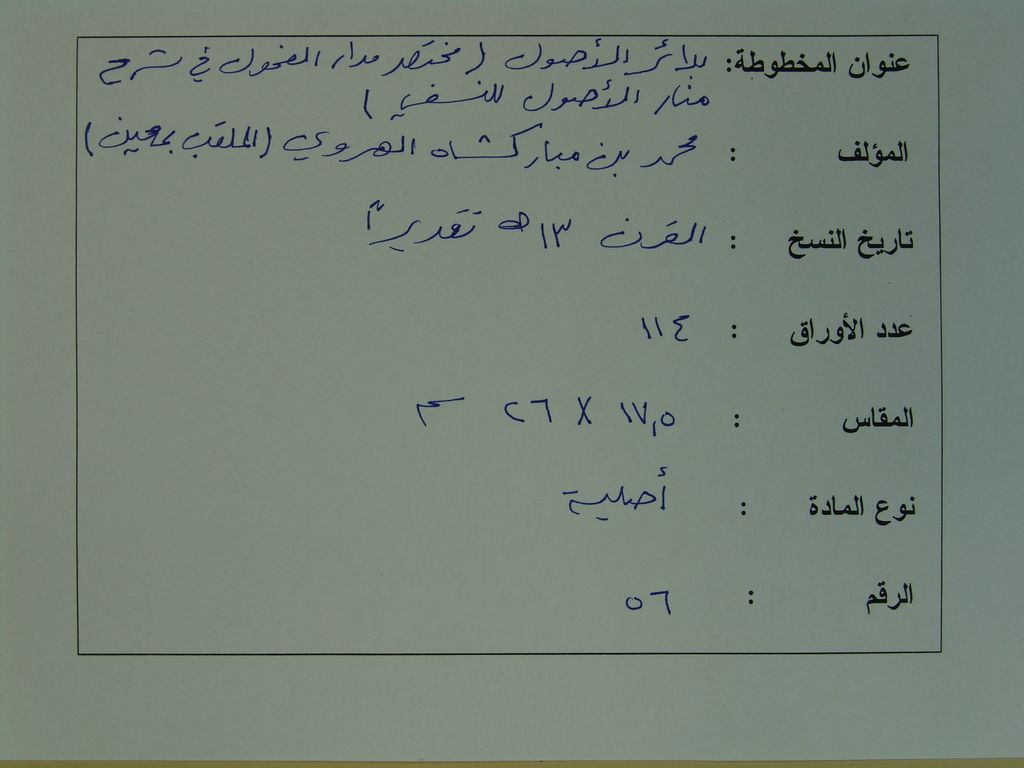 عنوان المخطوطة: بدائر الأصول (مختصر مدار الفحول في شرح
منار الأصول للنسفي)
المؤلف : محمد بن مباركشاه الهروي (الملقب بمعين)
تاريخ النسخ : القرن ١٣ هـ تقديراً
عدد الأوراق : ١١٤
المقاس : ١٧,٥ X ٢٦ سم
نوع المادة : أصلية
الرقم : ٥٦